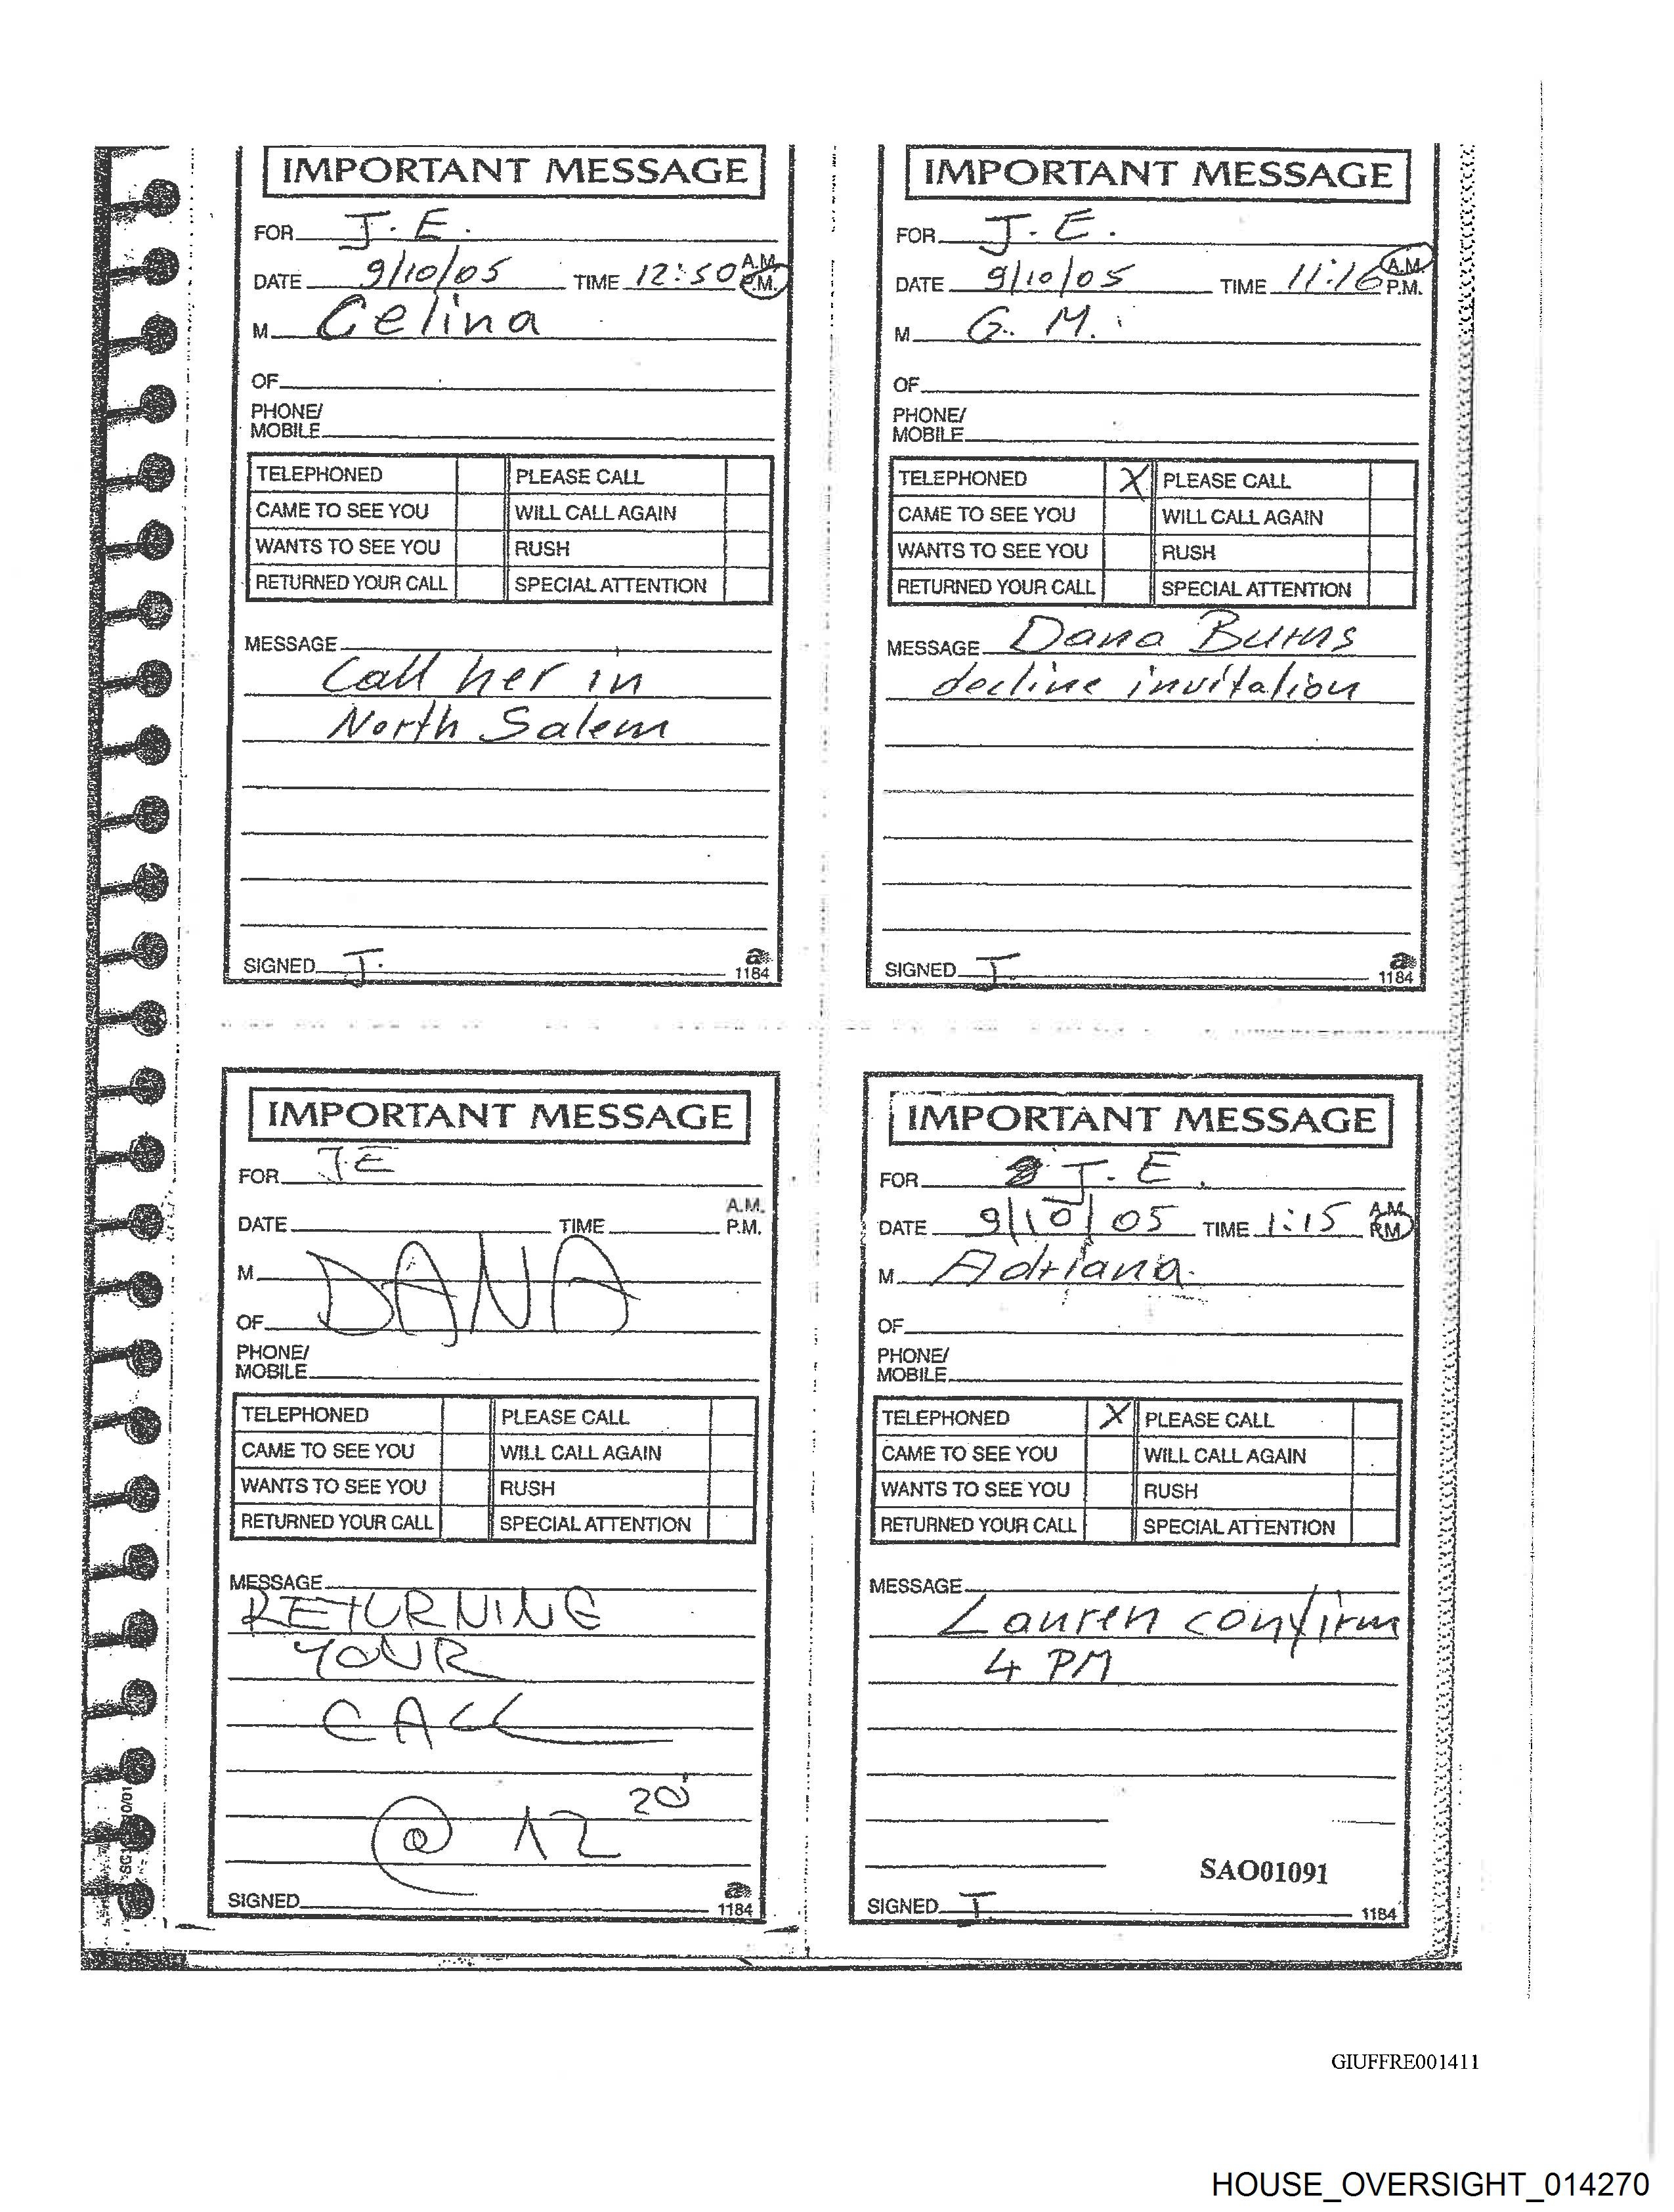 IMPORTANT MESSAGE
FOR J.E.
DATE 9/10/05 TIME 12:50 A.M. P.M.
M Celina
OF
PHONE/
MOBILE
TELEPHONED PLEASE CALL
CAME TO SEE YOU WILL CALL AGAIN
WANTS TO SEE YOU RUSH
RETURNED YOUR CALL SPECIAL ATTENTION
MESSAGE
Call her in
North Salem
SIGNED J.
a
1184
IMPORTANT MESSAGE
FOR J.E.
DATE 9/10/05 TIME 11:16 A.M. P.M.
M G. M.
OF
PHONE/
MOBILE
TELEPHONED X PLEASE CALL
CAME TO SEE YOU WILL CALL AGAIN
WANTS TO SEE YOU RUSH
RETURNED YOUR CALL SPECIAL ATTENTION
MESSAGE Dana Burns
decline invitation
SIGNED J
a
1184
IMPORTANT MESSAGE
FOR JE
DATE TIME A.M. P.M.
M DANA
OF
PHONE/
MOBILE
TELEPHONED PLEASE CALL
CAME TO SEE YOU WILL CALL AGAIN
WANTS TO SEE YOU RUSH
RETURNED YOUR CALL SPECIAL ATTENTION
MESSAGE
RETURNING
YOUR
CALL
@ 12 20
SIGNED
a
1184
IMPORTANT MESSAGE
FOR J.E.
DATE 9/10/05 TIME 1:15 A.M. P.M.
M Adriana
OF
PHONE/
MOBILE
TELEPHONED X PLEASE CALL
CAME TO SEE YOU WILL CALL AGAIN
WANTS TO SEE YOU RUSH
RETURNED YOUR CALL SPECIAL ATTENTION
MESSAGE
Lauren confirm
4 PM
SAO01091
SIGNED J
1184
GIUFFRE001411
HOUSE_OVERSIGHT_014270